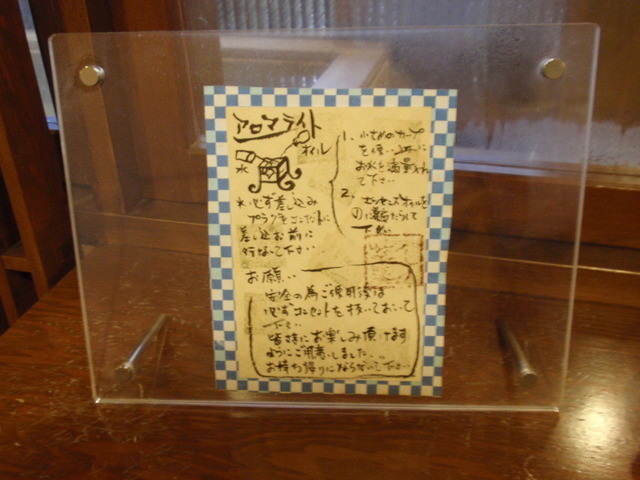 アロマライト
オイル
水
1、小さめのカップ
を使い
お水を適量入れ
て下さい
2、エッセンスオイルを
に滴たらして
下さい
※必ず差し込み
プラグをコンセントに
差し込む前に
行なって下さい
お願い
安全の為ご使用後は
必ずコンセントを抜いておいて
下さい
皆様にお楽しみ頂けます
ようにご用意しました
お持ち帰りにならないで下さい